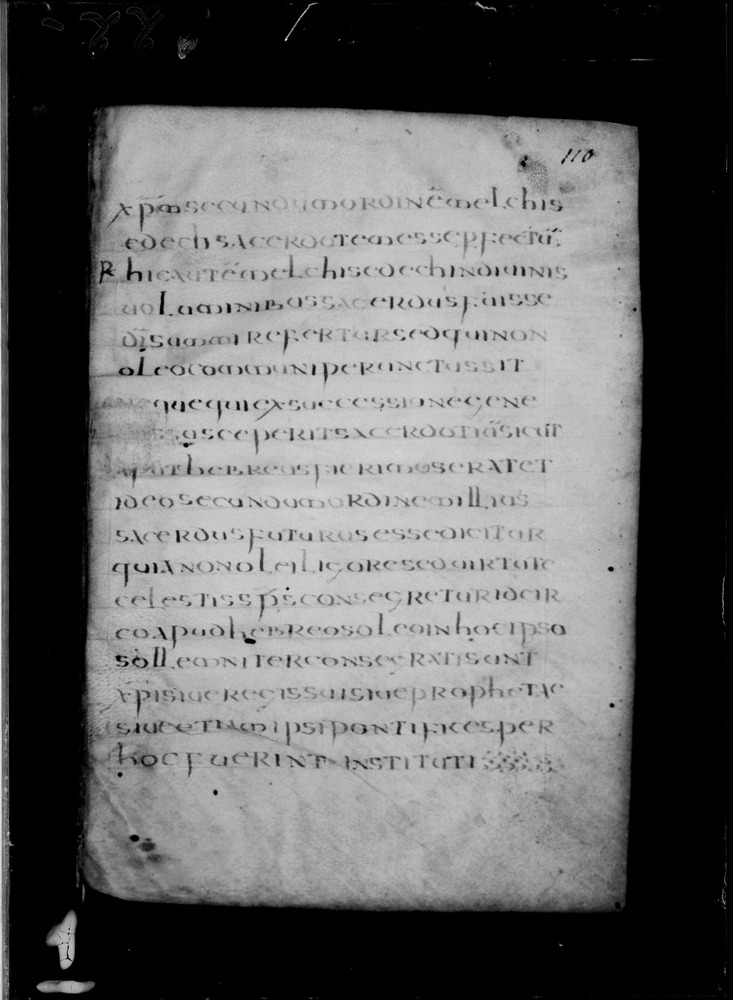 110
xp̄m secundum ordinē melchis
edech sacerdotem esse perfectū;
R hic autē melchisedech in diuinis
uoluminibus sacerdus fuisse
di summi refertur sed qui non
oleo communi perunctus sit
neque qui ex successione gene
ris susceperit sacerdotiū sicut
aput hebreos fieri mos erat et
ideo secundum ordinem illius
sacerdus futurus esse dicitur
quia non olei ligore sed uirtute
celestis sp̄s consegretur idcir
co apud hebreos oleo in hoc ipso
sollemniter consegrati sunt
xpi siue regis sui siue prophetae
siue etiam ipsi pontifices per
hoc fuerint instituti